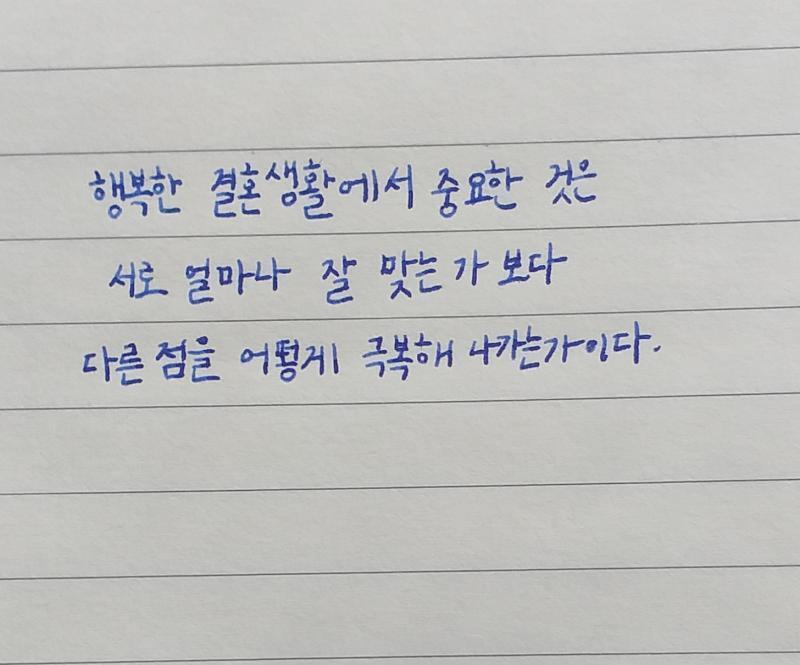 행복한 결혼생활에서 중요한 것은
서로 얼마나 잘 맞는가 보다
다른 점을 어떻게 극복해 나가는가이다.